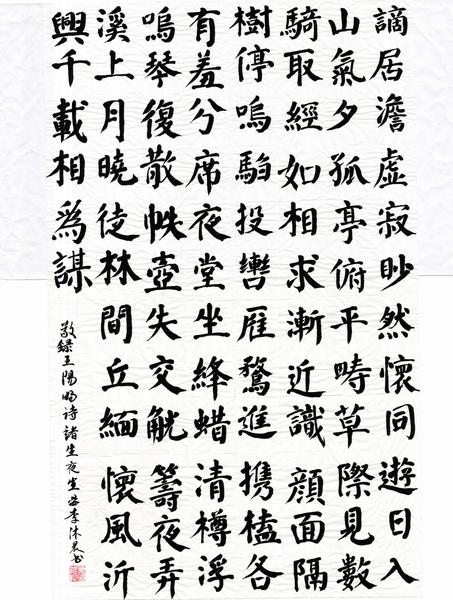 謫居澹虛寂眇然懷同遊日入
山氣夕孤亭俯平畴草際見數
騎取經如相求漸近識顔面隔
樹停鳴騶投轡雁鶩進携榼各
有羞分席夜堂坐絳蜡清樽浮
鳴琴復散帙壺矢交觥籌夜弄
溪上月曉徒林間丘緬懷風沂
興千載相爲謀
敬録王陽明诗諸生夜坐李沐書